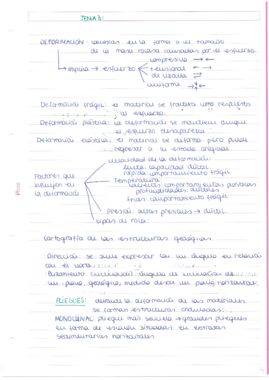 TEMA 8:
DEFORMACIÓN: cambios en la forma o el tamaño
de la masa rocosa causados por el esfuerzo.
→ implica → esfuerzo
compresivo → ←
tensional ← →
de cizalla ⇌
uniforme
Deformación frágil: el material se fractura como respuesta
al esfuerzo.
Deformación plástica: la deformación se mantiene aunque
el esfuerzo desaparezca.
Deformación elástica: el material se deforma pero puede
regresar a su estado original
Factores que
influyen en
la deformación
velocidad de la deformación:
lenta: capacidad dúctil
rápida: comportamiento frágil
Temperatura
calientes: comportamientos plásticos
profundidades: dúctiles
frías: comportamiento frágil
Presión: altas presiones → dúctil
tipos de roca
Cartografía de las estructuras geológicas.
Dirección: se suele expresar con un ángulo en relación
con el norte
Buzamiento (inclinación): ángulo de inclinación de
un plano geológico, medido desde un plano horizontal.
PLIEGUES: durante la deformación de los materiales
se forman estructuras onduladas:
MONOCLINAL: pliegue más sencillo → grandes pliegues
en forma de escalón situados en estratos
sedimentarios horizontales